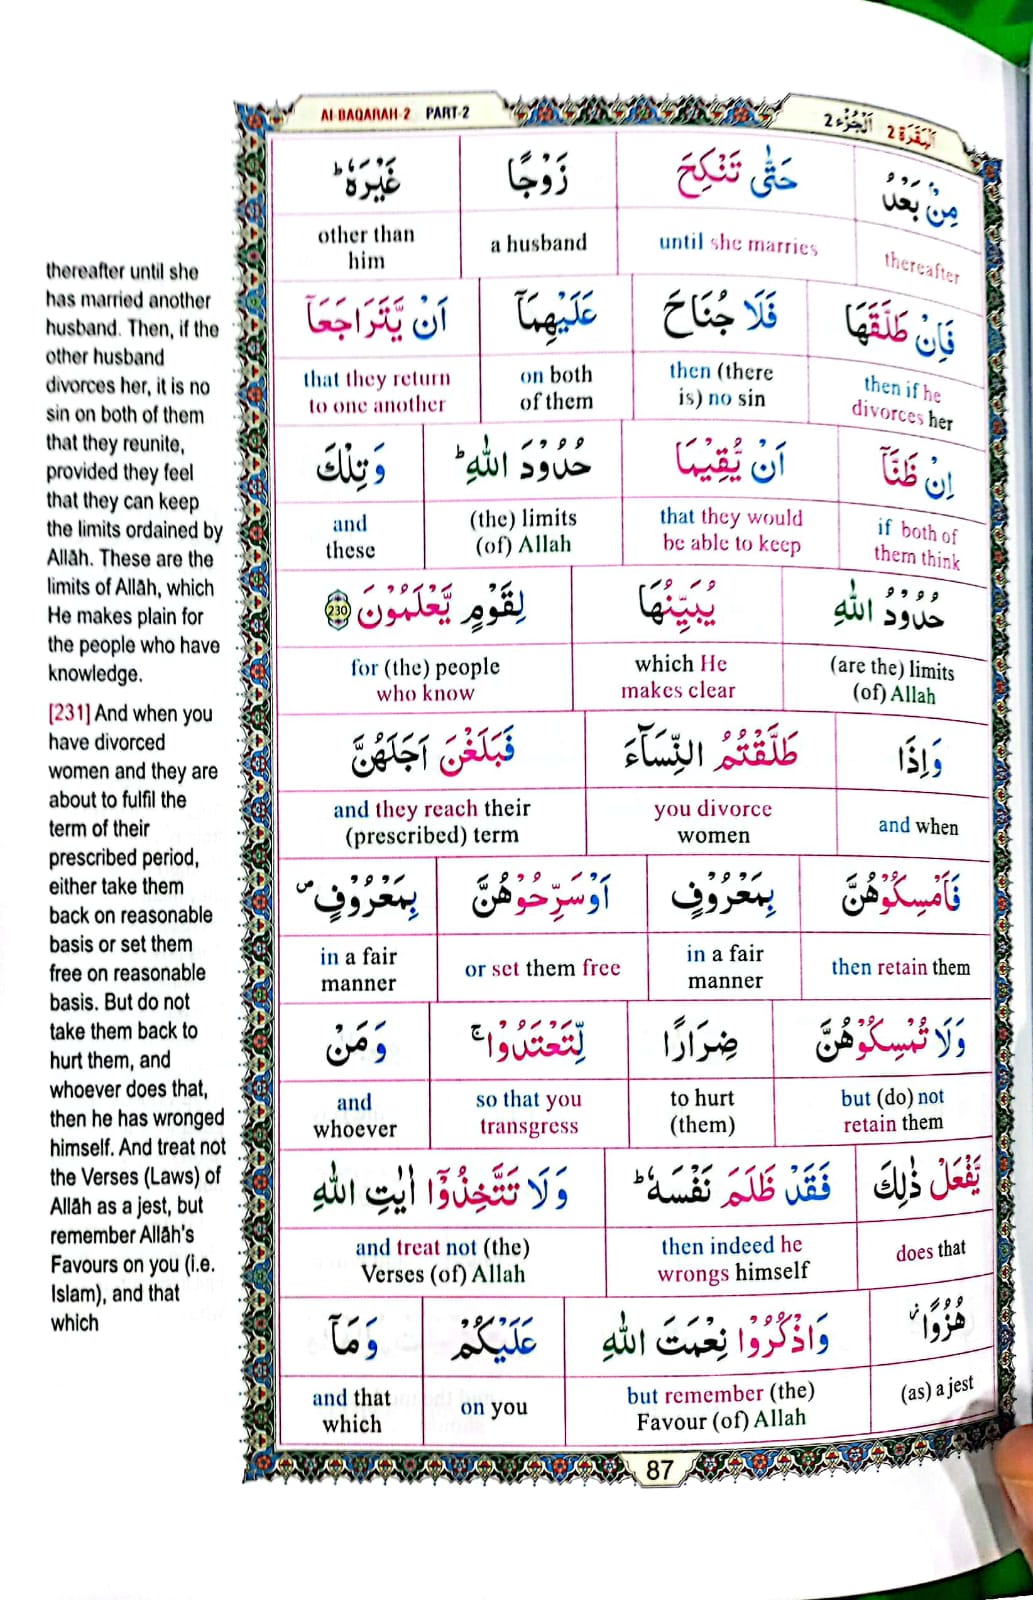 Al-BAQARAH-2 PART-2
اَلْجُزْء 2 اَلْبَقَرَة 2
مِنْۢ بَعْدُ حَتّٰى تَنْكِحَ زَوْجًا غَيْرَهٗ ؕ
thereafter until she marries a husband other than
him
فَاِنْ طَلَّقَهَا فَلَا جُنَاحَ عَلَيْهِمَاۤ اَنْ يَّتَرَاجَعَاۤ
then if he then (there on both that they return
divorces her is) no sin of them to one another
اِنْ ظَنَّاۤ اَنْ يُّقِيْمَا حُدُوْدَ اللّٰهِ ؕ وَتِلْكَ
if both of that they would (the) limits and
them think be able to keep (of) Allah these
حُدُوْدُ اللّٰهِ يُبَيِّنُهَا لِقَوْمٍ يَّعْلَمُوْنَ 230
(are the) limits which He for (the) people
(of) Allah makes clear who know
وَاِذَا طَلَّقْتُمُ النِّسَآءَ فَبَلَغْنَ اَجَلَهُنَّ
and when you divorce and they reach their
women (prescribed) term
فَاَمْسِكُوْهُنَّ بِمَعْرُوْفٍ اَوْسَرِّحُوْهُنَّ بِمَعْرُوْفٍ ص
then retain them in a fair or set them free in a fair
manner manner
وَلَا تُمْسِكُوْهُنَّ ضِرَارًا لِّتَعْتَدُوْا ۚ وَمَنْ
but (do) not to hurt so that you and
retain them (them) transgress whoever
يَّفْعَلْ ذٰلِكَ فَقَدْ ظَلَمَ نَفْسَهٗ ؕ وَلَا تَتَّخِذُوْۤا اٰيٰتِ اللّٰهِ
does that then indeed he and treat not (the)
wrongs himself Verses (of) Allah
هُزُوًا وَاذْكُرُوْا نِعْمَتَ اللّٰهِ عَلَيْكُمْ وَمَاۤ
(as) a jest but remember (the) on you and that
Favour (of) Allah which
87
thereafter until she
has married another
husband. Then, if the
other husband
divorces her, it is no
sin on both of them
that they reunite,
provided they feel
that they can keep
the limits ordained by
Allāh. These are the
limits of Allāh, which
He makes plain for
the people who have
knowledge.
[231] And when you
have divorced
women and they are
about to fulfil the
term of their
prescribed period,
either take them
back on reasonable
basis or set them
free on reasonable
basis. But do not
take them back to
hurt them, and
whoever does that,
then he has wronged
himself. And treat not
the Verses (Laws) of
Allāh as a jest, but
remember Allāh's
Favours on you (i.e.
Islam), and that
which